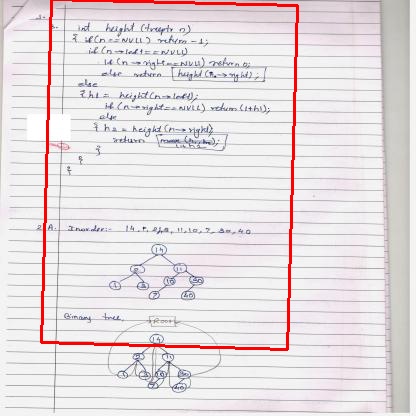 int height (treeptr n)
{ if (n == NULL) return -1;
if (n → left == NULL)
if (n → right == NULL) return 0;
else return height (n → right);
else
{ h1 = height (n → left);
if (n → right == NULL) return (1+h1);
else
{ h2 = height (n → right);
return
}
}
{
2 A. Inorder:- 14, 11, 10, 7, 30, 40
14
2 11
1 3 10 30
7 40
Binary tree,
Root
14
2 11
1 3 10 30
7 40